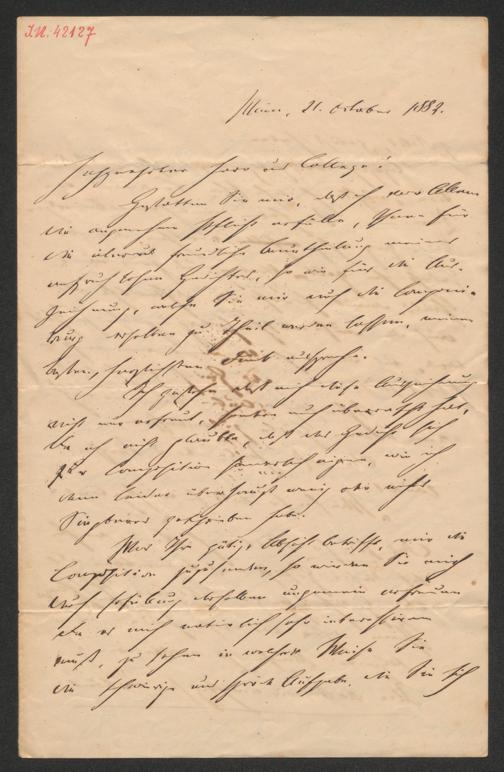 I.N. 42127
Wien, 21. October 1882.
Hochgeehrter Herr und College!
Gestatten Sie mir, daß ich vor Allem
die angenehme Pflicht erfülle, Ihnen für
die überaus freundliche Beurtheilung meines
anspruchslosen Gedichtes, so wie für die Aus-
zeichnung, welche Sie mir durch die Componi-
rung desselben zu Theil werden lassen, meinen
besten, herzlichsten Dank ausspreche.
Ich gestehe, daß mich diese Auszeichnung
nicht nur erfreut, sondern auch überrascht hat,
da ich nicht glaubte, daß das Gedicht sich
zur Composition eignen, wie ich
denn leider überhaupt wenig oder nichts
Singbares geschrieben habe.
Was Ihre gütige Absicht betrifft, mir die
Composition zuzusenden, so würden Sie mich
durch desselben ungemein erfreuen
da es mich natürlich sehr interessiren
muß, zu sehen in welcher Weise Sie
die schwierige und Aufgabe, die Sie sich